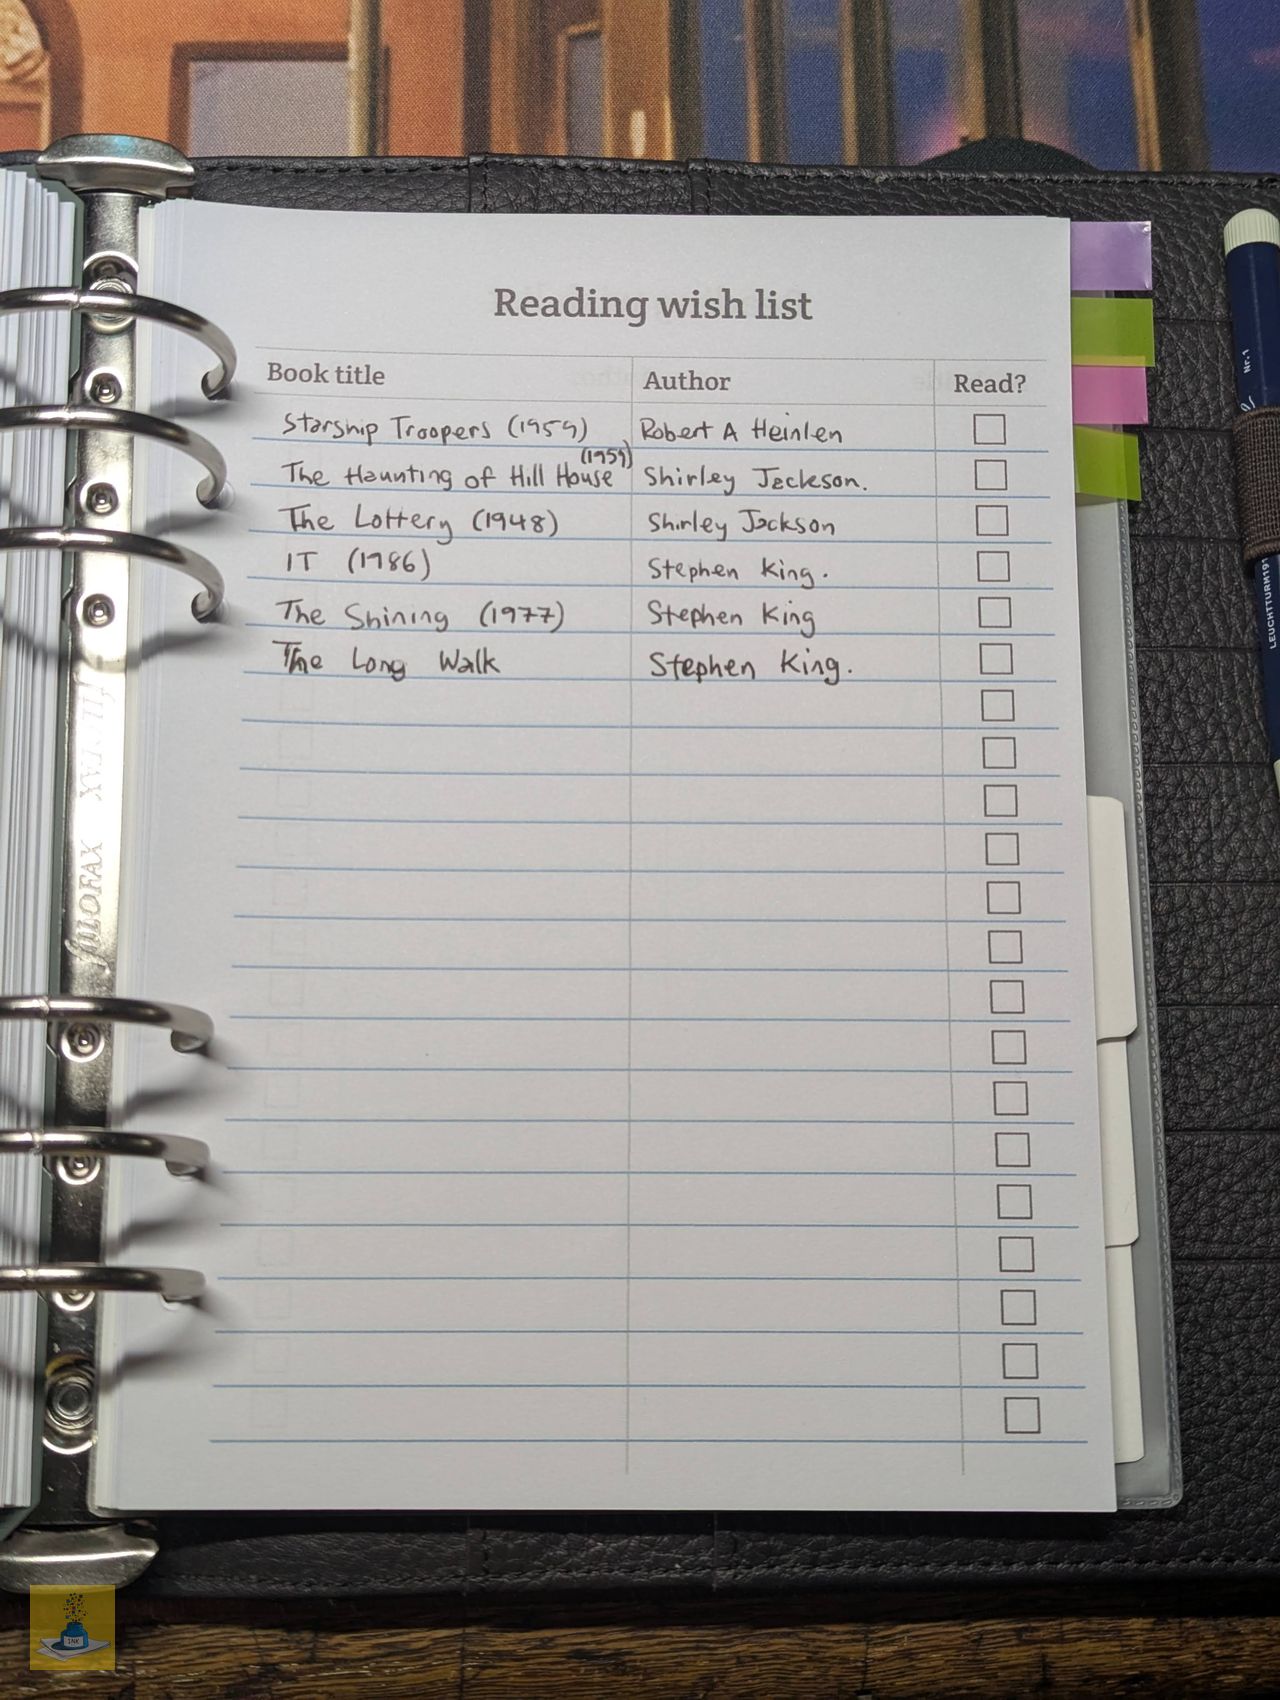 Reading wish list
Book title Author Read?
Starship Troopers (1959) Robert A Heinlen
The Haunting of Hill House (1959) Shirley Jackson.
The Lottery (1948) Shirley Jackson
IT (1986) Stephen King.
The Shining (1977) Stephen King
The Long Walk Stephen King.
filofax
Nr.1
LEUCHTTURM191
INK